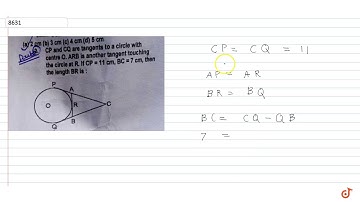 8631
(a) 2 cm (b) 3 cm (c) 4 cm (d) 5 cm
CP and CQ are tangents to a circle with
centre O. ARB is another tangent touching
the circle at R. If CP = 11 cm, BC = 7 cm, then
the length BR is :
P
A
O
R
C
B
Q
CP = CQ = 11
AP = AR
BR = BQ
BC = CQ - QB
7 =